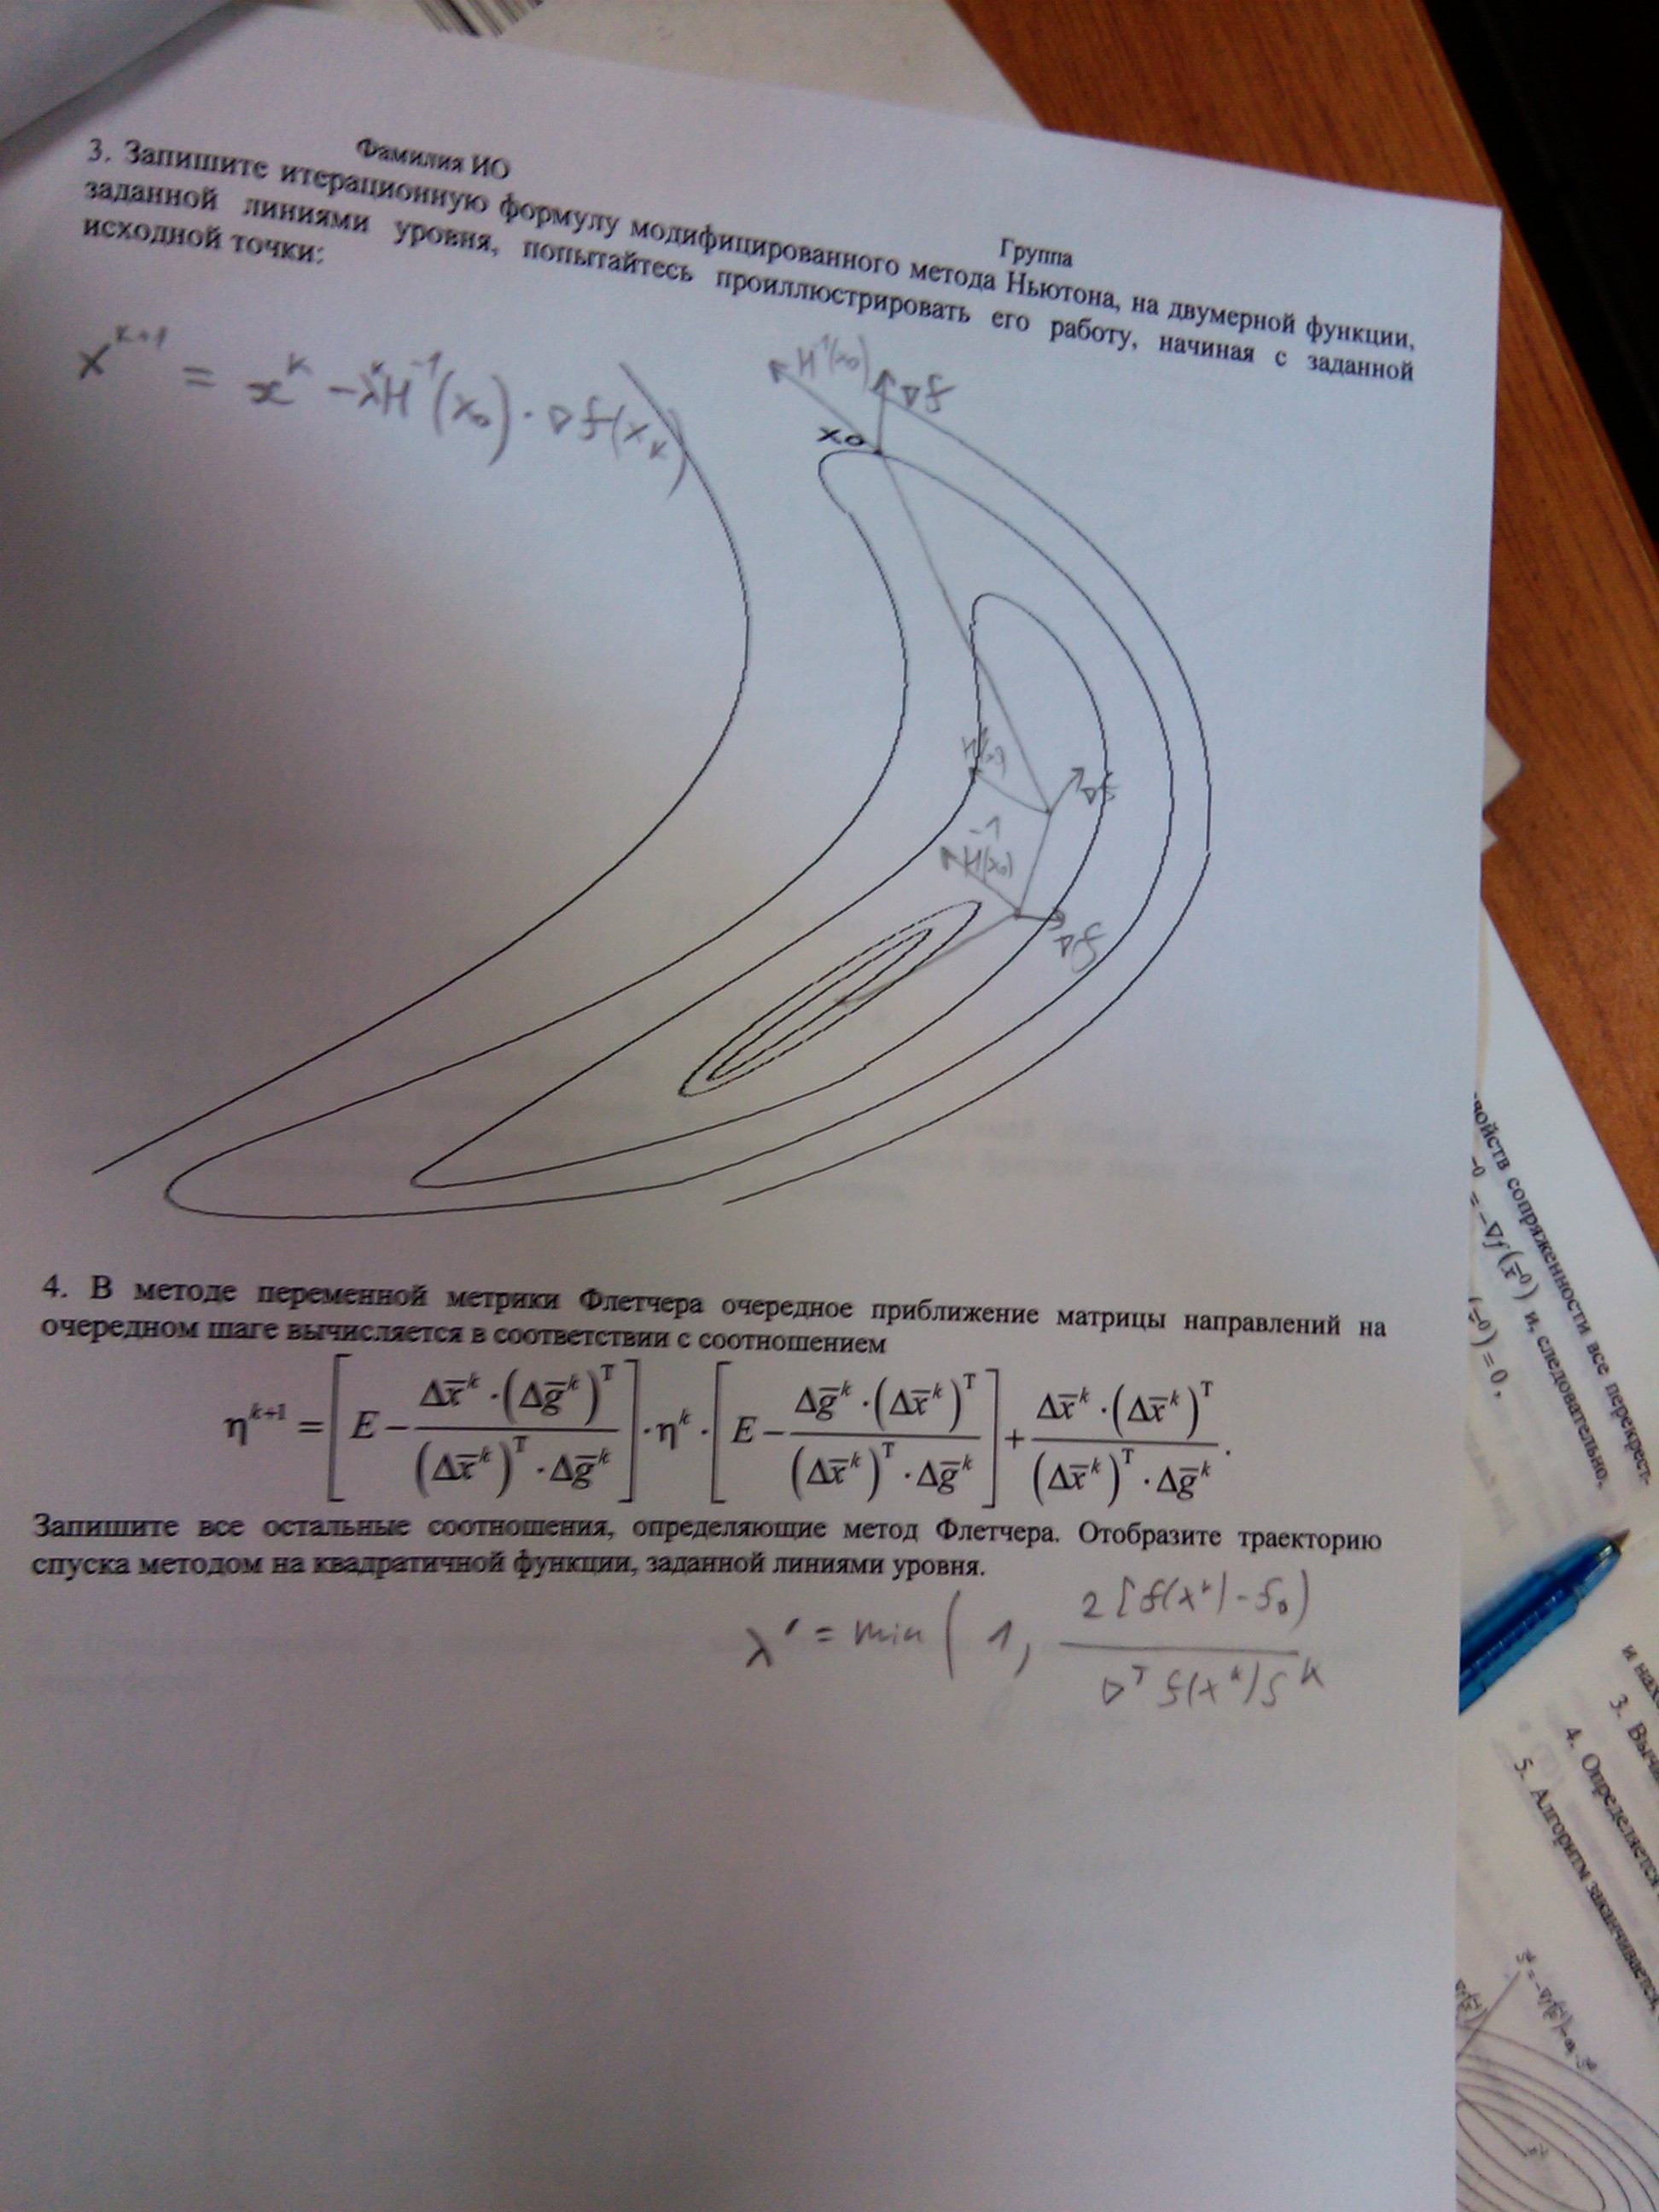 Фамилия ИО
Группа
3. Запишите итерационную формулу модифицированного метода Ньютона, на двумерной функции,
заданной линиями уровня, попытайтесь проиллюстрировать его работу, начиная с заданной
исходной точки:
x^{k+1} = x^k − λ^k H^{-1}(x_0) · ∇f(x_k)
H^{-1}(x_0)
∇f
x_0
∇f
H^{-1}(x_0)
∇f
4. В методе переменной метрики Флетчера очередное приближение матрицы направлений на
очередном шаге вычисляется в соответствии с соотношением
η^{k+1} = [E − Δx̄^k · (Δḡ^k)^T / (Δx̄^k)^T · Δḡ^k] · η^k · [E − Δḡ^k · (Δx̄^k)^T / (Δx̄^k)^T · Δḡ^k] + Δx̄^k · (Δx̄^k)^T / (Δx̄^k)^T · Δḡ^k.
Запишите все остальные соотношения, определяющие метод Флетчера. Отобразите траекторию
спуска методом на квадратичной функции, заданной линиями уровня.
λ' = min ( 1, 2[f(x^k) − f_0) / ∇^T f(x^k) S^k
войств сопряженности все перекрест-
= −∇f(x̄^0) и, следовательно,
= 0,
3.
4. Определяется
5. Алгоритм заканчивается